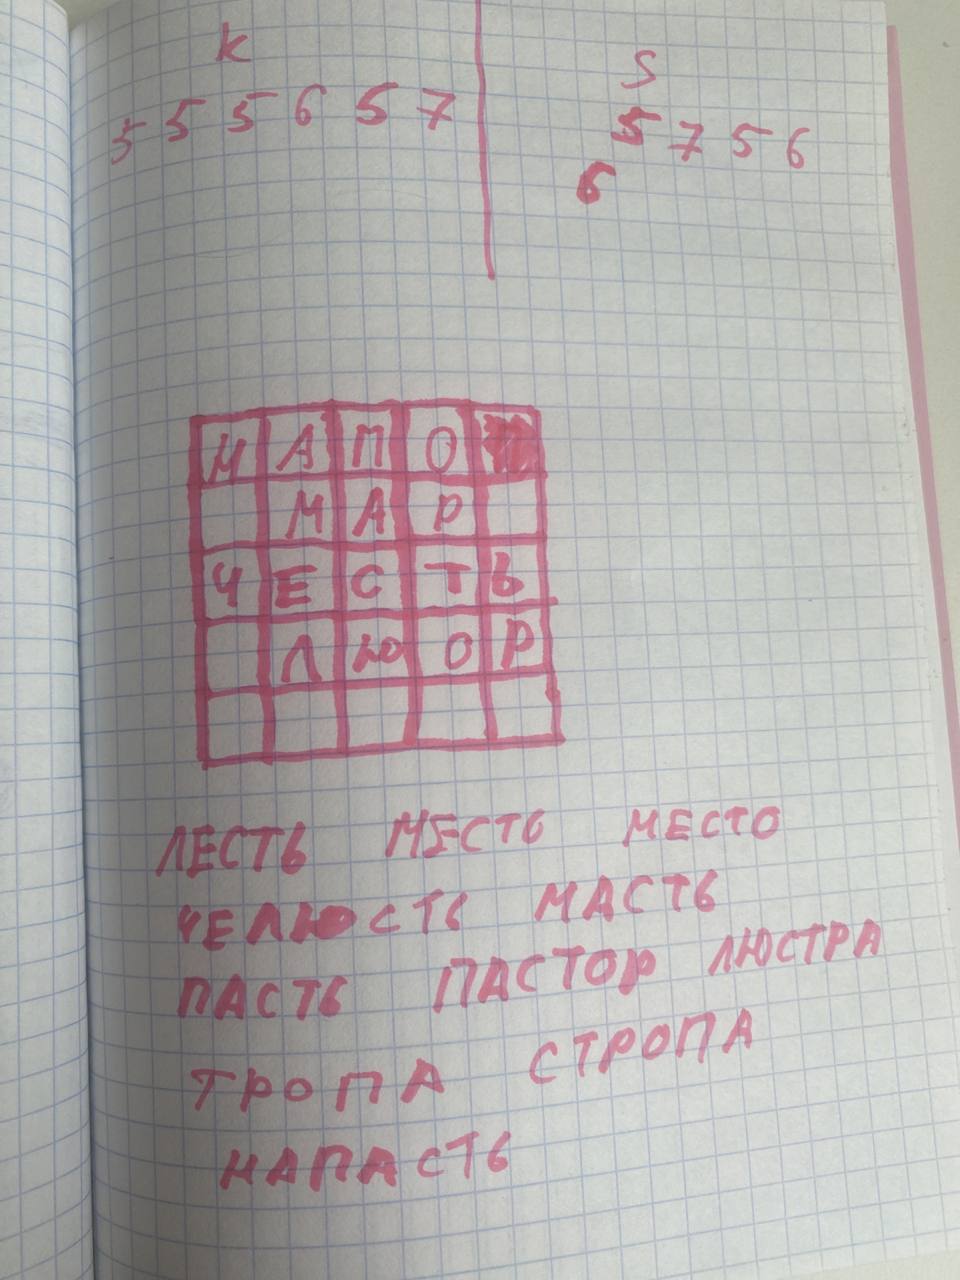 K
5 5 5 6 5 7
S
5 7 5 6
6
Н А П О
М А Р
Ч Е С Т Ь
Л Ю О Р
ЛЕСТЬ МЕСТЬ МЕСТО
ЧЕЛЮСТЬ МАСТЬ
ПАСТЬ ПАСТОР ЛЮСТРА
ТРОПА СТРОПА
НАПАСТЬ